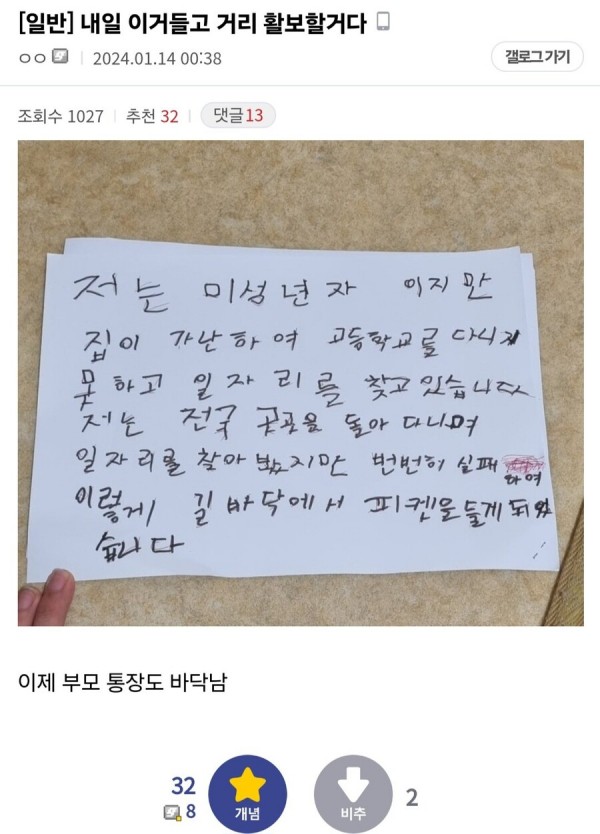 [일반] 내일 이거들고 거리 활보할거다
ㅇㅇ 2024.01.14 00:38 갤로그 가기
조회수 1027 추천 32 댓글 13
저는 미성년자 이지만
집이 가난하여 고등학교를 다니지
못하고 일자리를 찾고있습니다
저는 전국 곳곳을 돌아다니며
일자리를 찾아봤지만 번번히 실패
하여
이렇게 길바닥에서 피켓을들게되었
습니다
이제 부모 통장도 바닥남
32
8
개념
비추
2